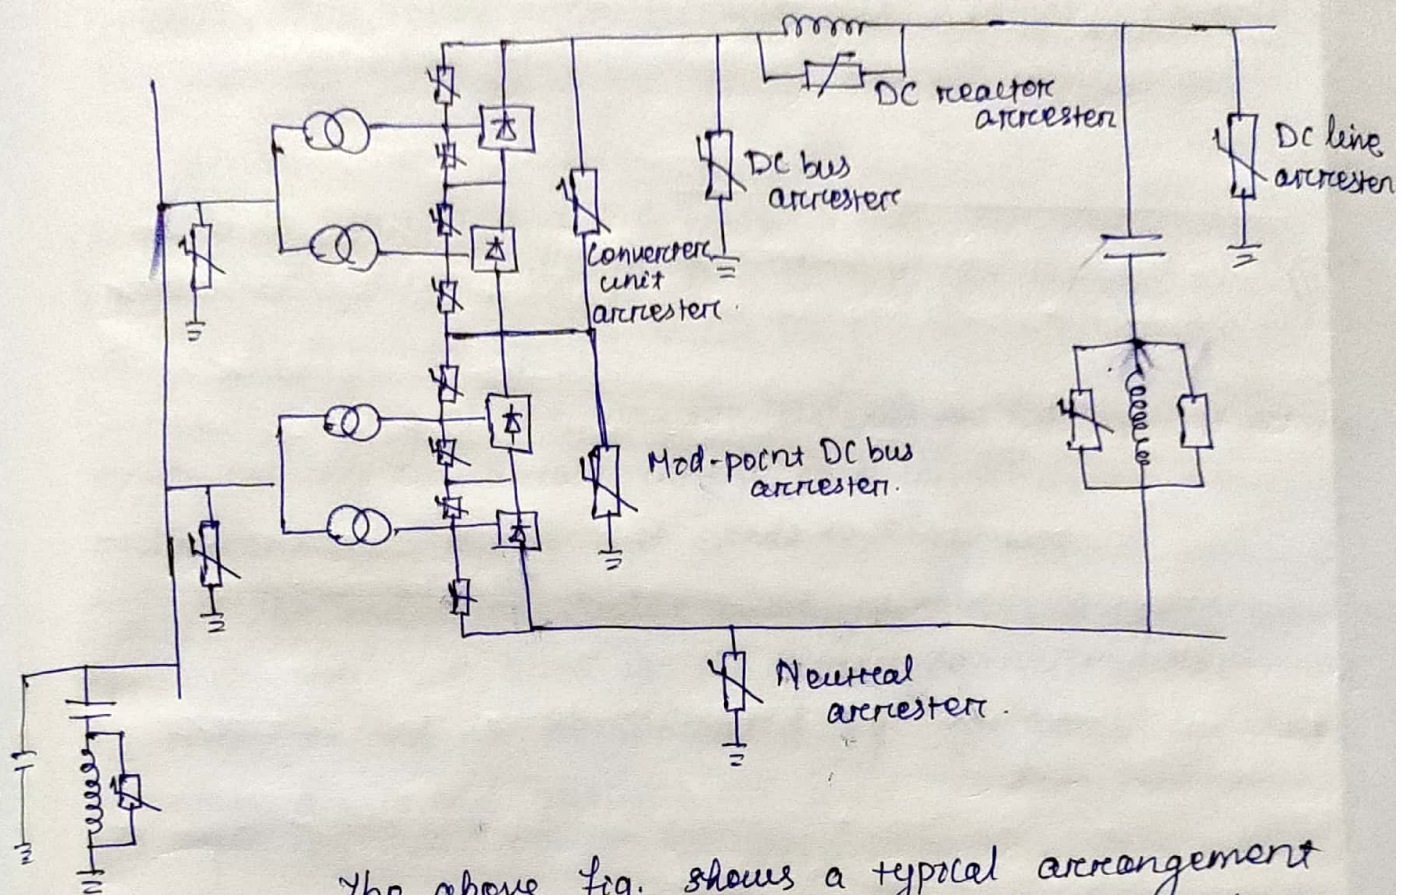 DC reactor
arrester
DC line
arrester
DC bus
arrester
Converter
unit
arrester.
Mid-point DC bus
arrester.
Neutral
arrester.
The above fig. shows a typical arrangement